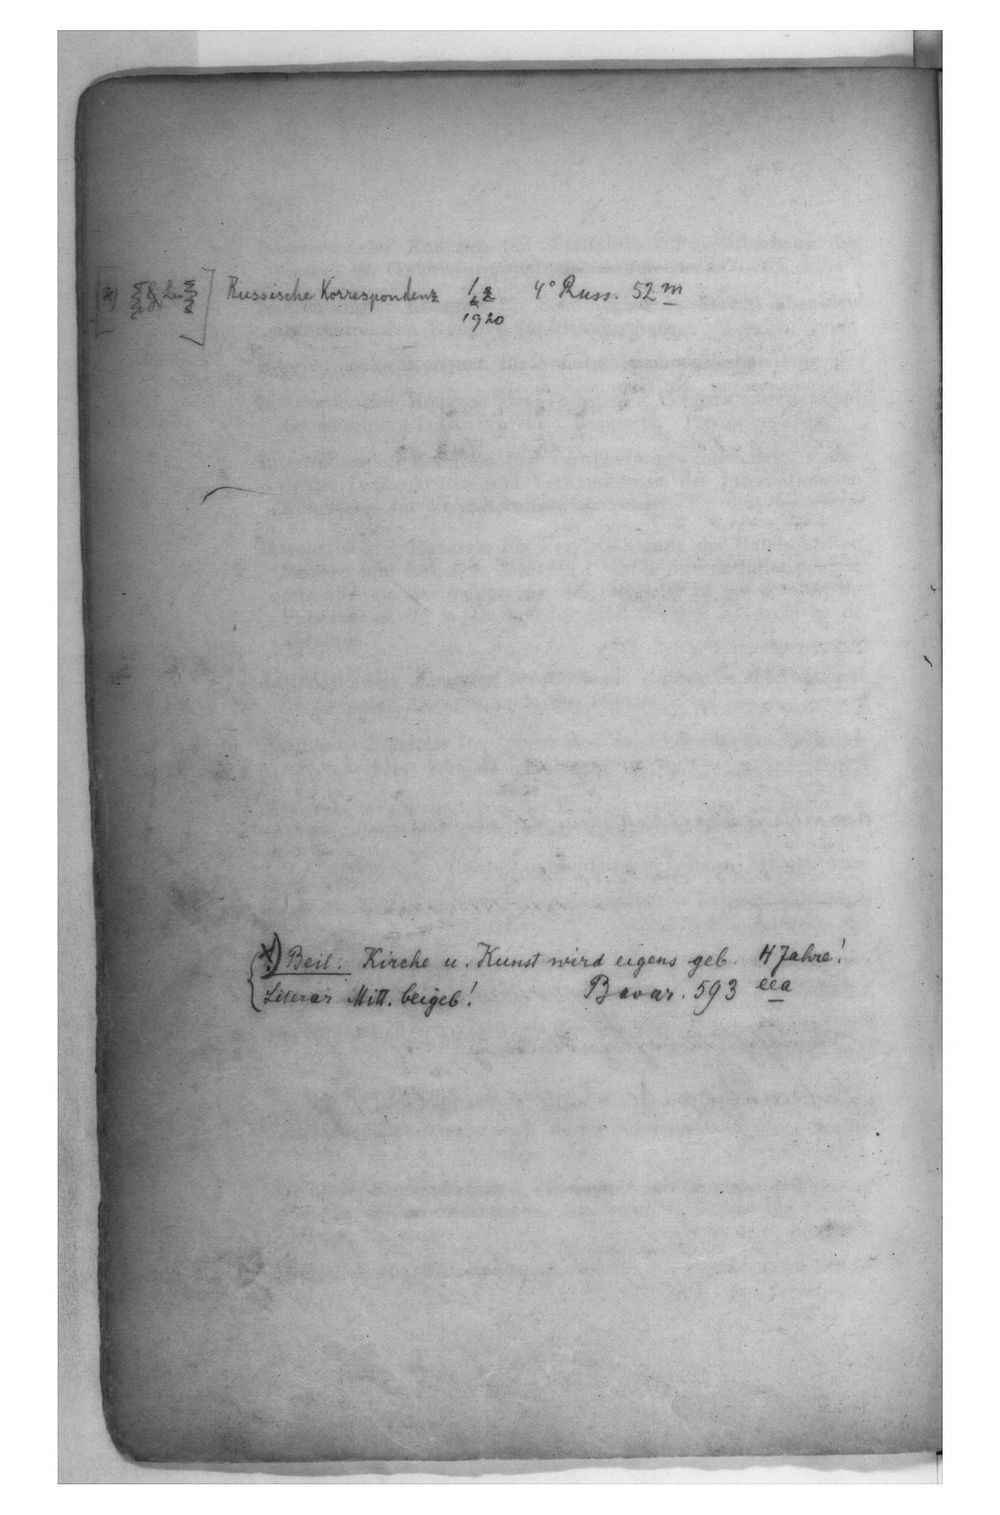 Russische Korrespondenz 1,2 4° Russ. 52 m
1920
x) Beil: Kirche u. Kunst wird eigens geb. 4 Jahre!
Literar. Mitt. beigeb! Bavar. 593 eea